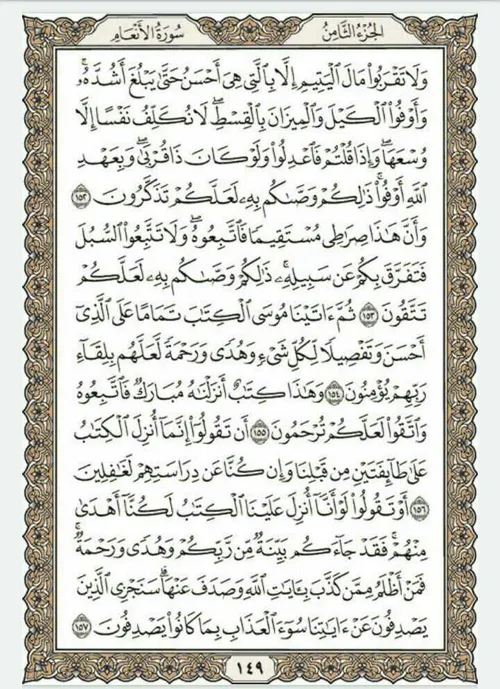 سُورَةُ الأَنْعَامِ الجُزْءُ الثَّامِنُ
وَلَا تَقْرَبُوا۟ مَالَ ٱلْيَتِيمِ إِلَّا بِٱلَّتِى هِىَ أَحْسَنُ حَتَّىٰ يَبْلُغَ أَشُدَّهُۥ ۖ
وَأَوْفُوا۟ ٱلْكَيْلَ وَٱلْمِيزَانَ بِٱلْقِسْطِ ۖ لَا نُكَلِّفُ نَفْسًا إِلَّا
وُسْعَهَا ۖ وَإِذَا قُلْتُمْ فَٱعْدِلُوا۟ وَلَوْ كَانَ ذَا قُرْبَىٰ ۖ وَبِعَهْدِ
ٱللَّهِ أَوْفُوا۟ ۚ ذَٰلِكُمْ وَصَّىٰكُم بِهِۦ لَعَلَّكُمْ تَذَكَّرُونَ ١٥٢
وَأَنَّ هَٰذَا صِرَٰطِى مُسْتَقِيمًا فَٱتَّبِعُوهُ ۖ وَلَا تَتَّبِعُوا۟ ٱلسُّبُلَ
فَتَفَرَّقَ بِكُمْ عَن سَبِيلِهِۦ ۚ ذَٰلِكُمْ وَصَّىٰكُم بِهِۦ لَعَلَّكُمْ
تَتَّقُونَ ١٥٣ ثُمَّ ءَاتَيْنَا مُوسَى ٱلْكِتَٰبَ تَمَامًا عَلَى ٱلَّذِىٓ
أَحْسَنَ وَتَفْصِيلًا لِّكُلِّ شَىْءٍ وَهُدًى وَرَحْمَةً لَّعَلَّهُم بِلِقَآءِ
رَبِّهِمْ يُؤْمِنُونَ ١٥٤ وَهَٰذَا كِتَٰبٌ أَنزَلْنَٰهُ مُبَارَكٌ فَٱتَّبِعُوهُ
وَٱتَّقُوا۟ لَعَلَّكُمْ تُرْحَمُونَ ١٥٥ أَن تَقُولُوٓا۟ إِنَّمَآ أُنزِلَ ٱلْكِتَٰبُ
عَلَىٰ طَآئِفَتَيْنِ مِن قَبْلِنَا وَإِن كُنَّا عَن دِرَاسَتِهِمْ لَغَٰفِلِينَ
١٥٦ أَوْ تَقُولُوا۟ لَوْ أَنَّآ أُنزِلَ عَلَيْنَا ٱلْكِتَٰبُ لَكُنَّآ أَهْدَىٰ
مِنْهُمْ ۚ فَقَدْ جَآءَكُم بَيِّنَةٌ مِّن رَّبِّكُمْ وَهُدًى وَرَحْمَةٌ ۚ
فَمَنْ أَظْلَمُ مِمَّن كَذَّبَ بِـَٔايَٰتِ ٱللَّهِ وَصَدَفَ عَنْهَا ۗ سَنَجْزِى ٱلَّذِينَ
يَصْدِفُونَ عَنْ ءَايَٰتِنَا سُوٓءَ ٱلْعَذَابِ بِمَا كَانُوا۟ يَصْدِفُونَ ١٥٧
١٤٩